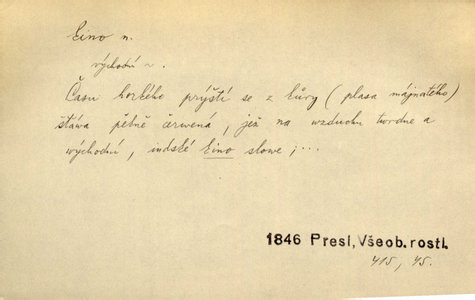 kino n.
východní ~.
Času horkého prýští se z kůry (plasa májnatého)
šťáwa pěkně čerwená, jež na wzduchu twrdne a
východní, indské kino slowe; ...
1846 Presl, Všeob. rostl.
415, 45.